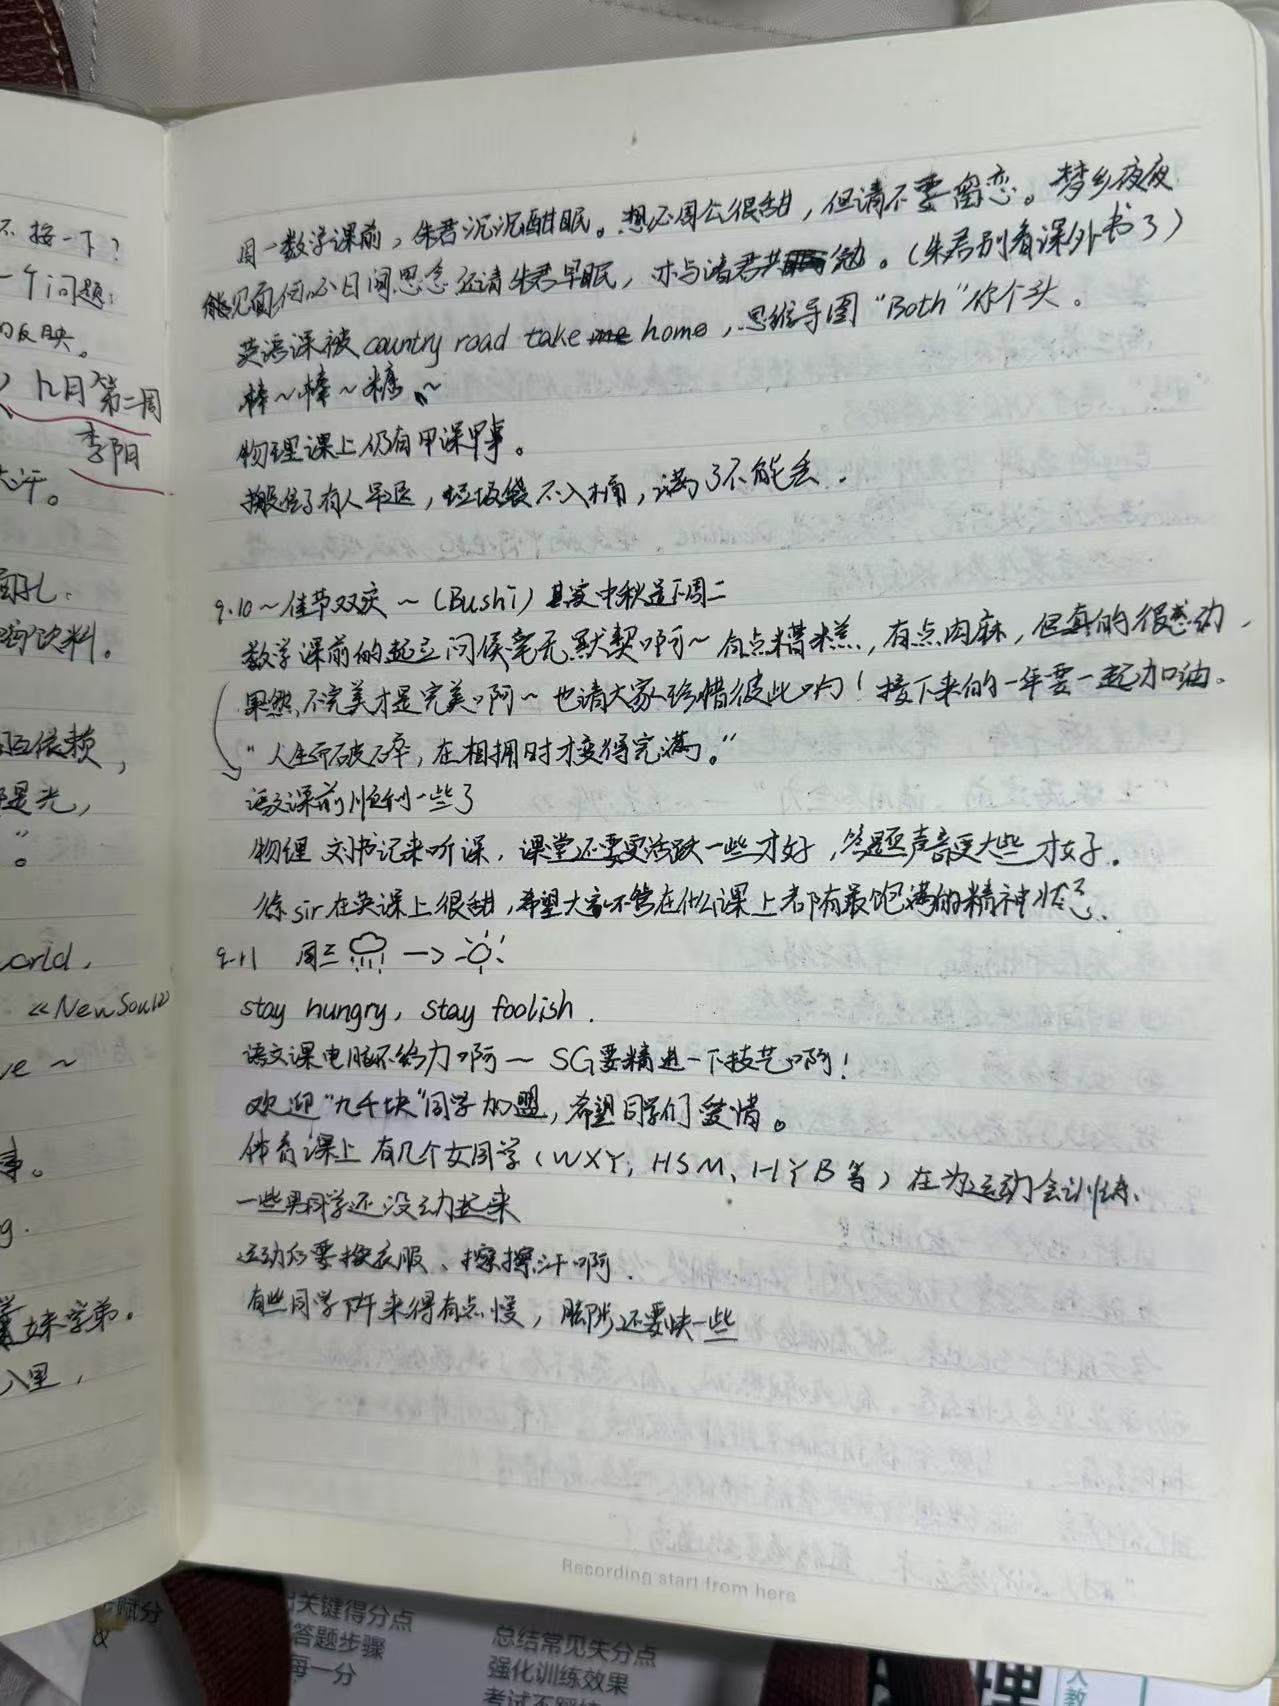 不接一下？
一个问题：
的反映。
九月第二周
李阳
大汗。
面孔.
喝饮料。
相互依赖，
是光，
”。
world，
《New Soul》
ve ~
事。
g.
学妹学弟。
八里，
周一数学课前，朱君沉沉酣眠。想必周公很甜，但请不要留恋。梦乡夜夜
能见面何必日间思念还请朱君早眠，亦与诸君共勉。（朱君别看课外书了）
英语课被 country road take home，思维导图“Both”你个头。
棒～棒～糖～
物理课上仍有甲课甲事。
搬位了有人早退，垃圾袋不入桶，满了不能丢.
9.10～佳节双庆～（Bushi）其实中秋是下周二
数学课前的起立问侯毫无默契啊～有点糟糕，有点肉麻，但真的很感动，
果然，不完美才是完美啊～也请大家珍惜彼此哟！接下来的一年要一起加油。
“人生而破碎，在相拥时才变得完满。”
语文课前顺利一些了
物理 刘书记来听课，课堂还要更活跃一些才好，答题声音更大些才好.
徐sir在英课上很甜，希望大家不管在什么课上都有最饱满的精神状态.
9.11 周三 →
stay hungry, stay foolish.
语文课电脑不给力啊～ SG要精进一下技艺啊！
欢迎“九千块”同学加盟，希望同学们爱惜。
体育课上有几个女同学（WXY、HSM、HYB等）在为运动会训练.
一些男同学还没动起来
运动后要换衣服、擦擦汗啊.
有些同学下午来得有点慢，脚步还要快一些
Recording start from here
赋分
关键得分点
答题步骤
每一分
总结常见失分点
强化训练效果
理
人教